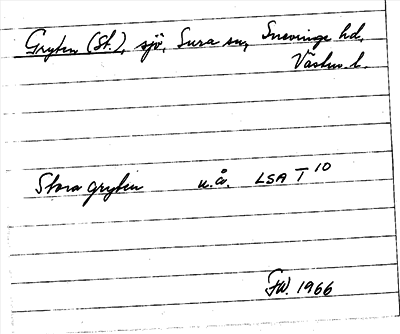 Gryten (St.), sjö, Sura sn, Snevringe hd,
Västm. l.
Stora gryten u.å. LSA T 10
FW. 1966